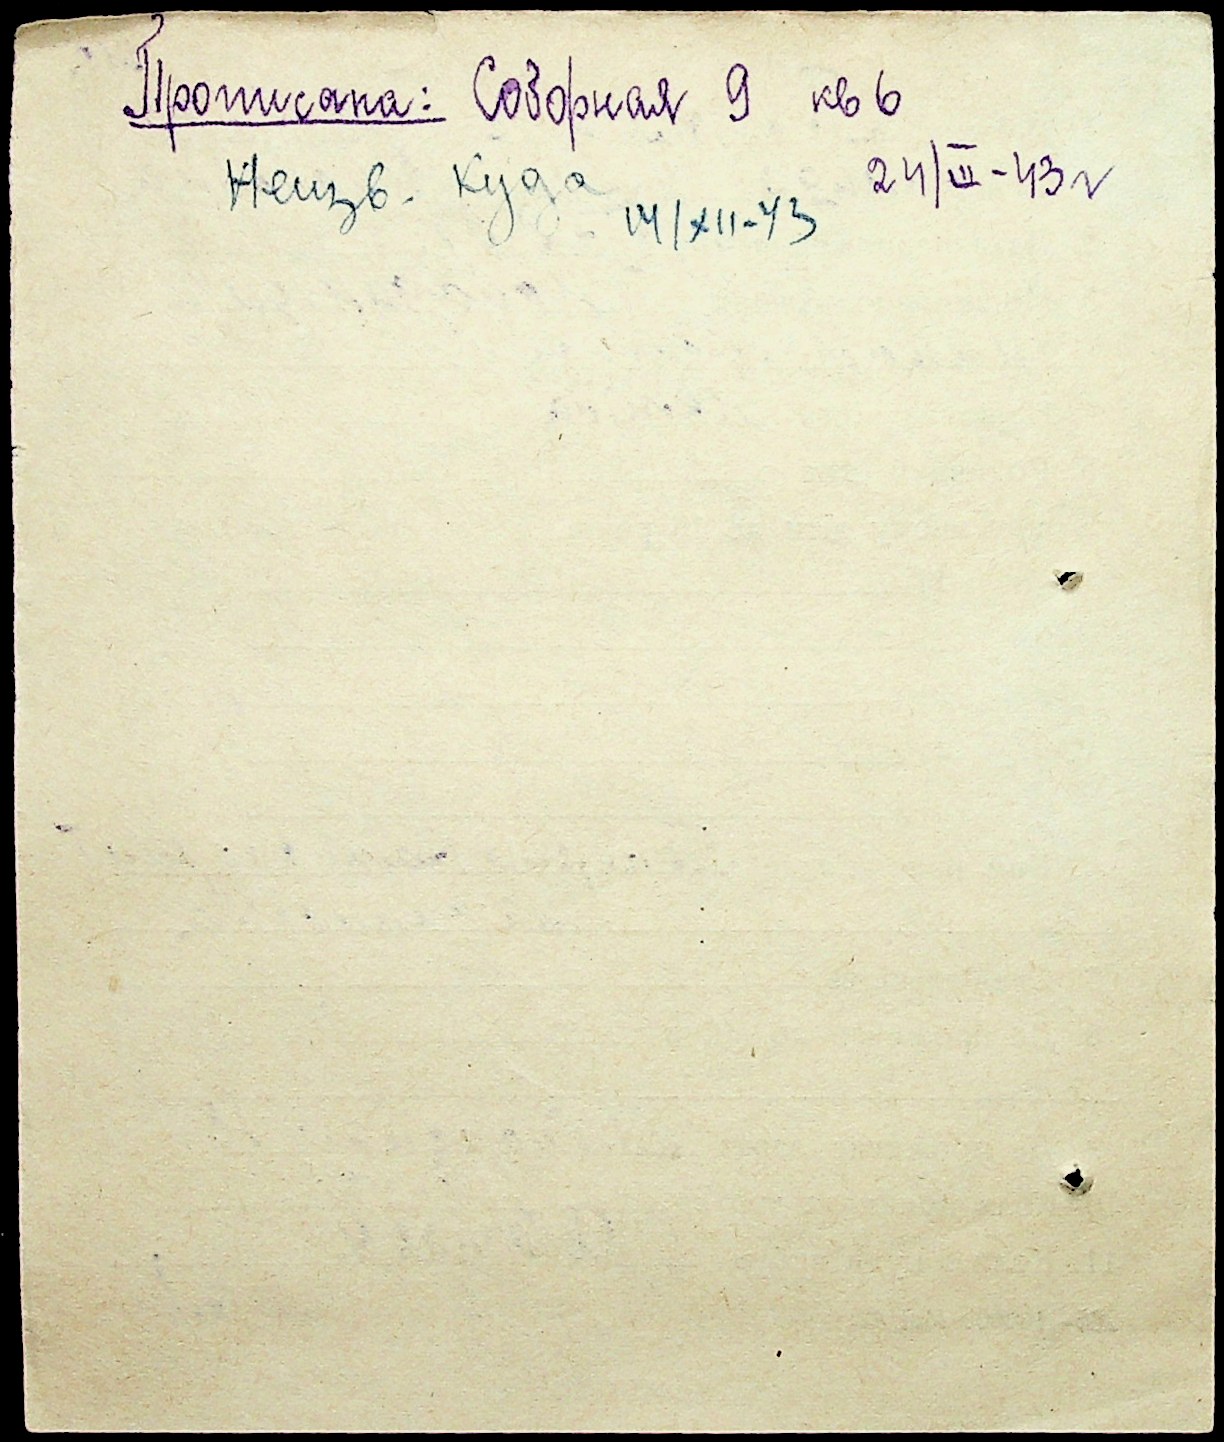 Прописана: Соборная 9 кв 6
24/III-43 г
Неизв. куда
14/XII-43